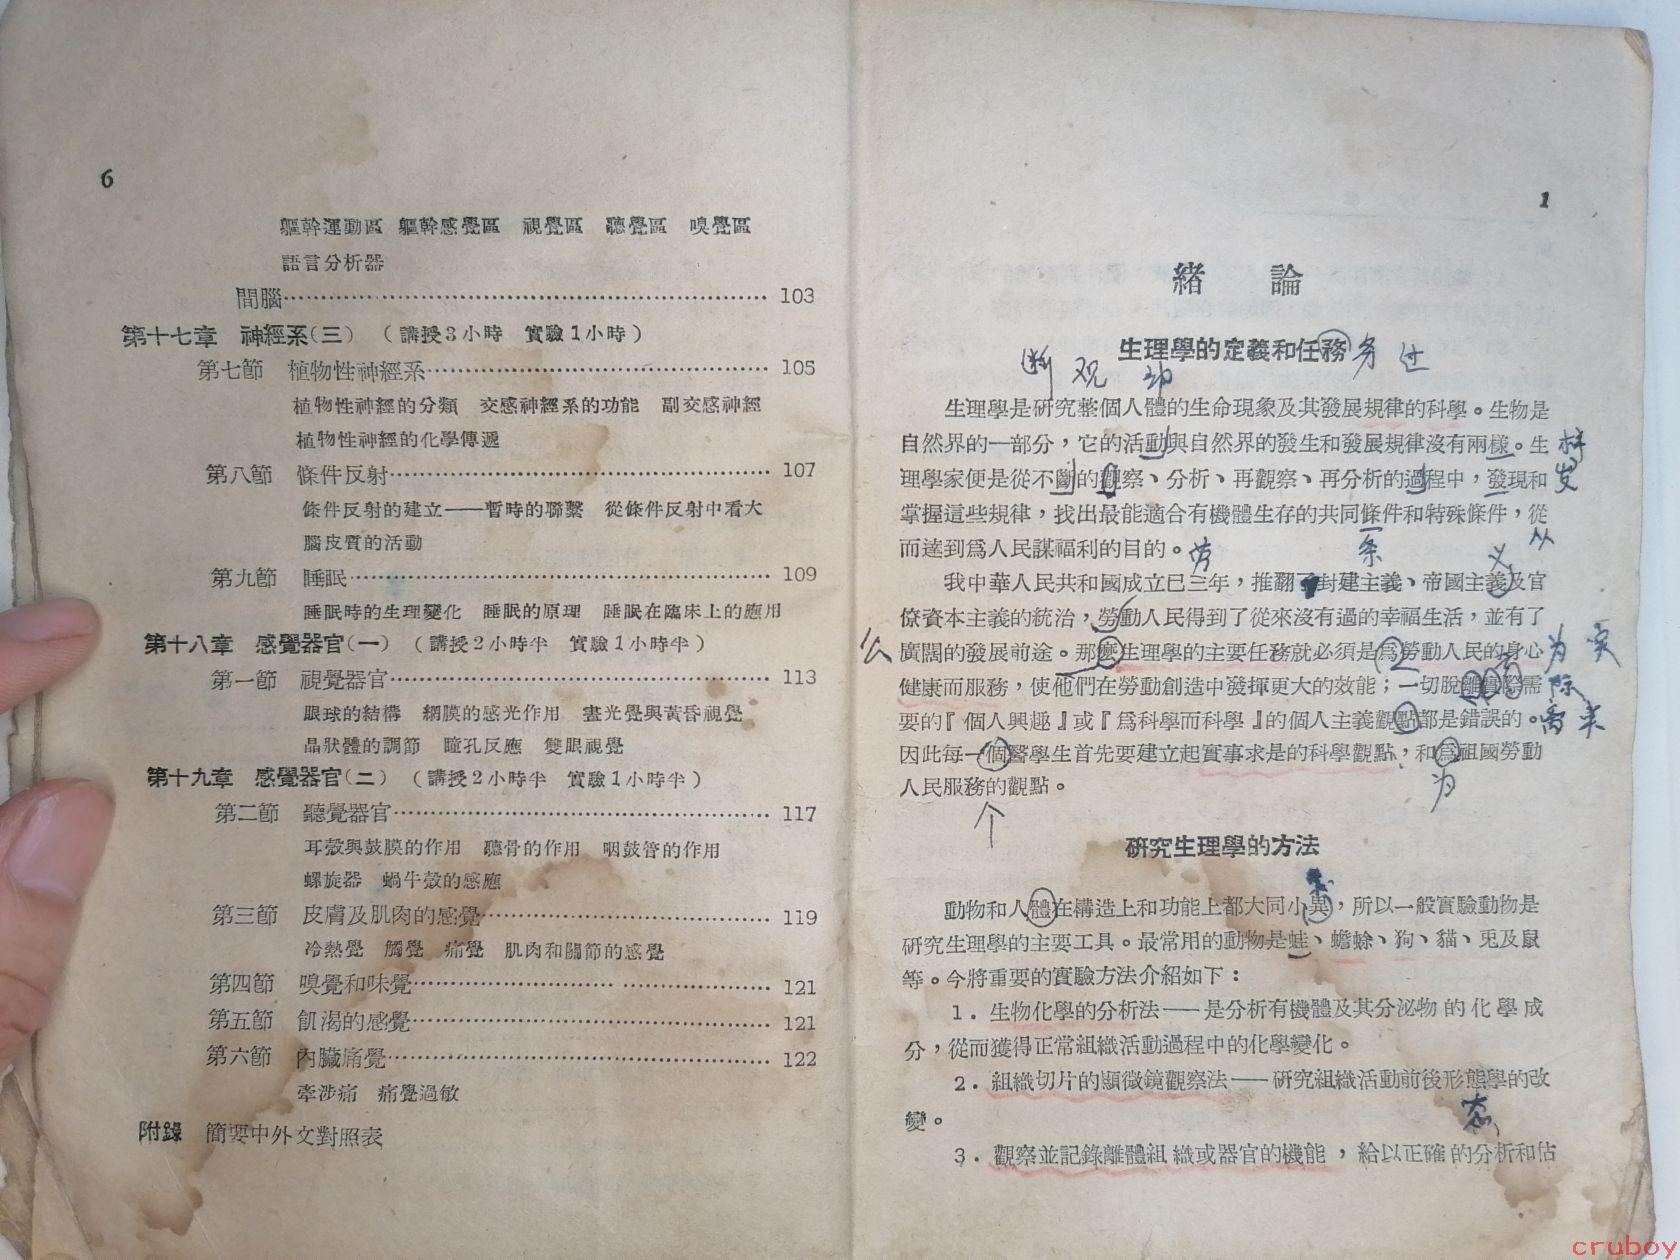 6
軀幹運動區 軀幹感覺區 視覺區 聽覺區 嗅覺區
語言分析器
間腦 103
第十七章 神經系(三) (講授3小時 實驗1小時)
第七節 植物性神經系 105
植物性神經的分類 交感神經系的功能 副交感神經
植物性神經的化學傳遞
第八節 條件反射 107
條件反射的建立——暫時的聯繫 從條件反射中看大
腦皮質的活動
第九節 睡眠 109
睡眠時的生理變化 睡眠的原理 睡眠在臨床上的應用
第十八章 感覺器官(一) (講授2小時半 實驗1小時半)
第一節 視覺器官 113
眼球的結構 網膜的感光作用 晝光覺與黃昏視覺
晶狀體的調節 瞳孔反應 雙眼視覺
第十九章 感覺器官(二) (講授2小時半 實驗1小時半)
第二節 聽覺器官 117
耳殼與鼓膜的作用 聽骨的作用 咽鼓管的作用
螺旋器 蝸牛殼的感應
第三節 皮膚及肌肉的感覺 119
冷熱覺 觸覺 痛覺 肌肉和關節的感覺
第四節 嗅覺和味覺 121
第五節 飢渴的感覺 121
第六節 內臟痛覺 122
牽涉痛 痛覺過敏
附錄 簡要中外文對照表
1
緒 論
生理學的定義和任務 务 过
断 观 动
生理學是研究整個人體的生命現象及其發展規律的科學。生物是
自然界的一部分,它的活動與自然界的發生和發展規律沒有兩樣。生 样
理學家便是從不斷的觀察、分析、再觀察、再分析的過程中,發現和 发
掌握這些規律,找出最能適合有機體生存的共同條件和特殊條件,從
从
而達到爲人民謀福利的目的。 劳 条 义
我中華人民共和國成立已三年,推翻了封建主義、帝國主義及官
僚資本主義的統治,勞動人民得到了從來沒有過的幸福生活,並有了
么 廣闊的發展前途。那麼生理學的主要任務就必須是爲勞動人民的身心 为 实
健康而服務,使他們在勞動創造中發揮更大的效能;一切脫離實際需 际
要的『個人興趣』或『爲科學而科學』的個人主義觀點都是錯誤的。 离
因此每一個醫學生首先要建立起實事求是的科學觀點,和爲祖國勞動
人民服務的觀點。 为
个
研究生理學的方法
動物和人體在構造上和功能上都大同小異,所以一般實驗動物是
研究生理學的主要工具。最常用的動物是蛙、蟾蜍、狗、貓、兎及鼠
等。今將重要的實驗方法介紹如下:
1. 生物化學的分析法——是分析有機體及其分泌物的化學成
分,從而獲得正常組織活動過程中的化學變化。
2. 組織切片的顯微鏡觀察法——研究組織活動前後形態學的改
變。 态
3. 觀察並記錄離體組織或器官的機能,給以正確的分析和估
cruboy